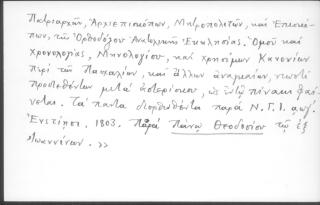 Πατριαρχῶν, Ἀρχιεπισκόπων, Μητροπολιτῶν, καὶ Ἐπισκό-
πων, τῆς Ὀρθοδόξου Ἀνατολικῆς Ἐκκλησίας. Ὁμοῦ καὶ
Χρονολογίας, Μηνολογίου, καὶ χρησίμων Κανονίων
περὶ τῶν Πασχαλίων, καὶ ἄλλων ἀναγκαίων, νεωστὶ
προστεθέντων μετὰ ἀστερίσκου, ὡς ἐν τῷ πίνακι φαί-
νεται. Τὰ πάντα διορθωθέντα παρὰ Ν. Γ. Ι.
Ἐνετίησι. 1803. Παρὰ Πάνῳ Θεοδοσίου τῷ ἐξ
Ἰωαννίνων. >>